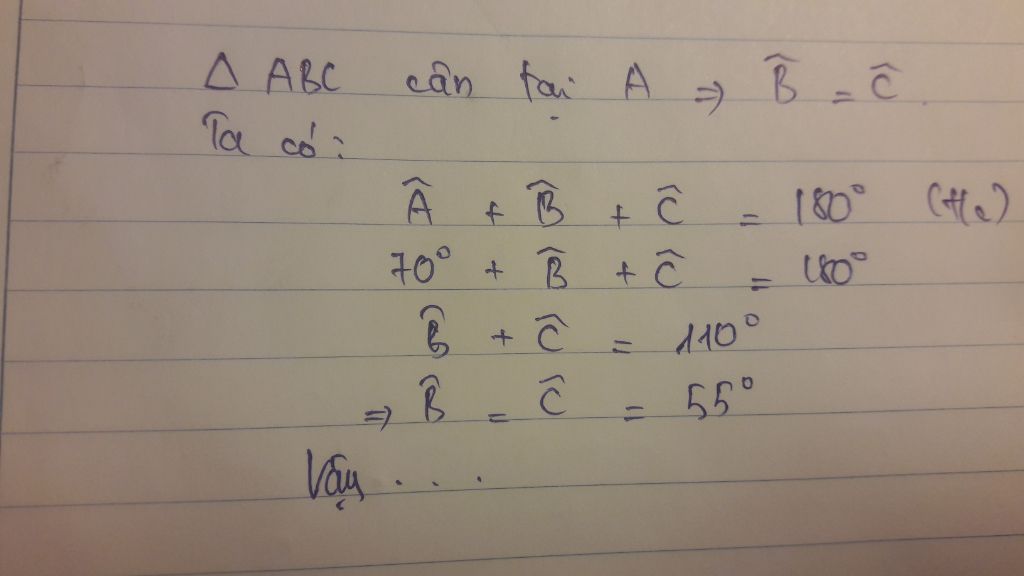 Δ ABC cân tại A ⇒ B̂ = Ĉ.
Ta có:
Â + B̂ + Ĉ = 180°
70° + B̂ + Ĉ = 180°
B̂ + Ĉ = 110°
⇒ B̂ = Ĉ = 55°
Vậy . . . .